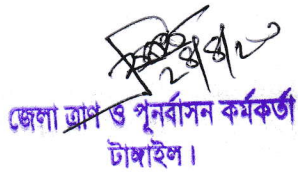 জেলা ত্রাণ ও পূনর্বাসন কর্মকর্তা
টাঙ্গাইল।